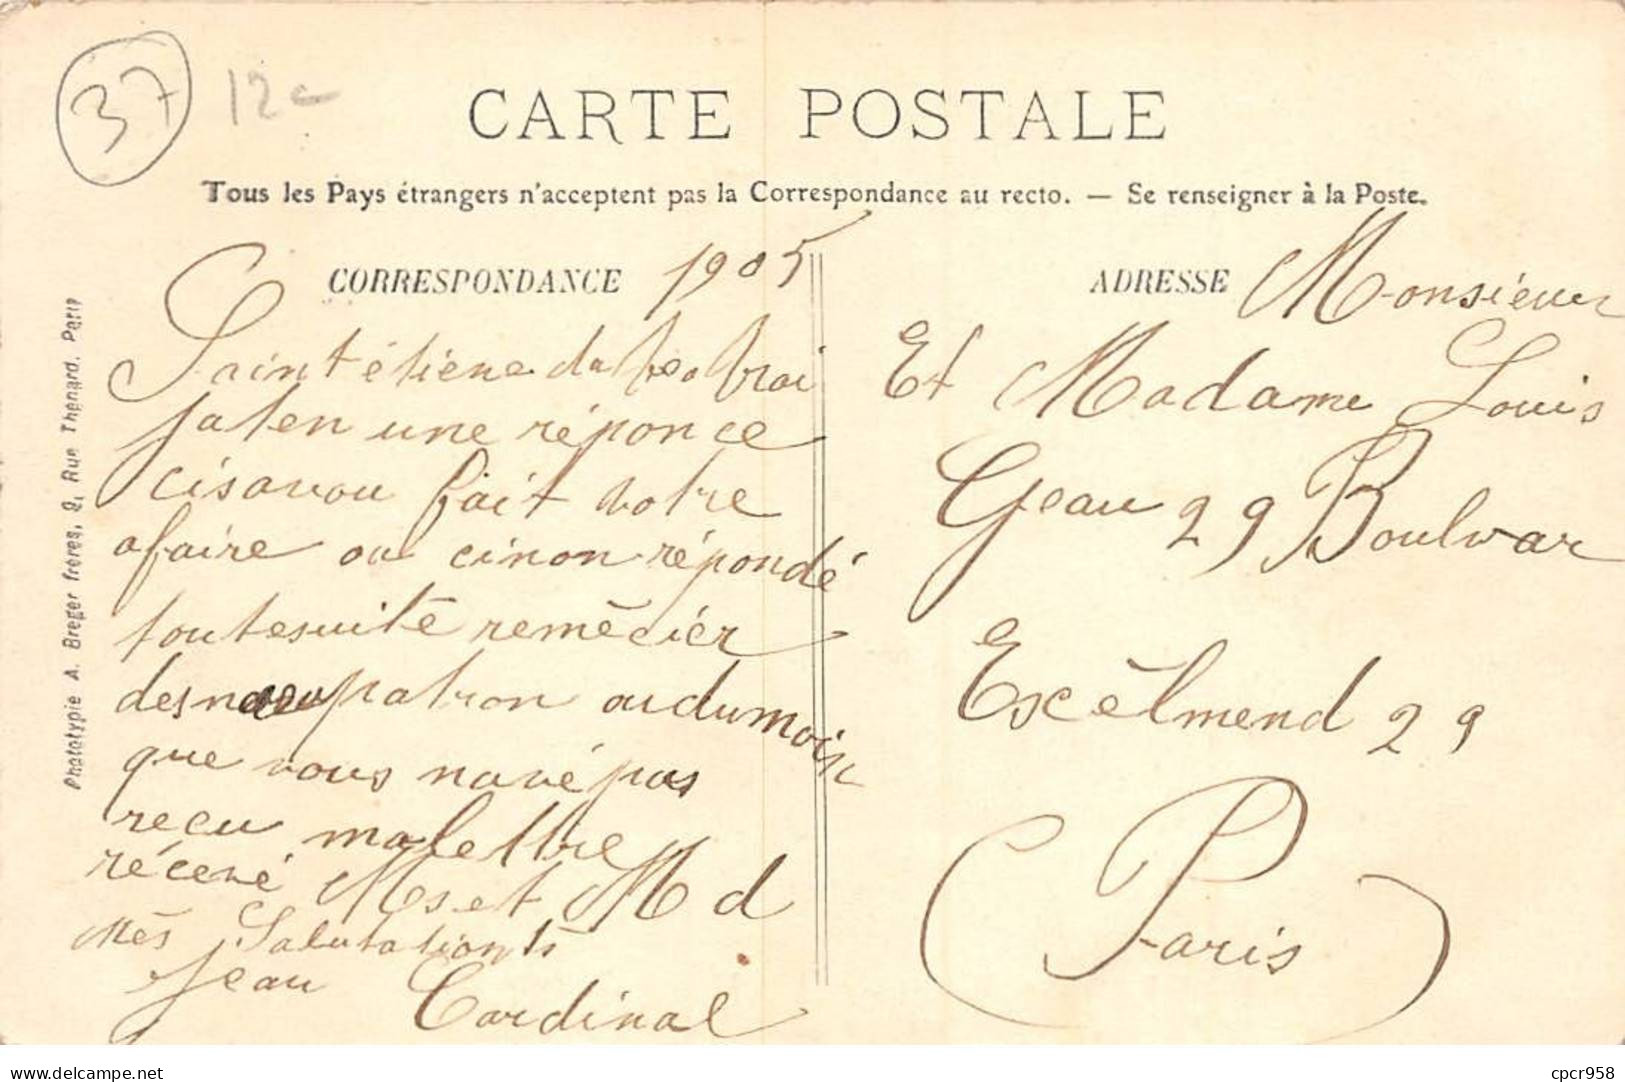 37 12c
CARTE POSTALE
Tous les Pays étrangers n'acceptent pas la Correspondance au recto. — Se renseigner à la Poste.
CORRESPONDANCE 1905
Saint étiene
jaten une réponce
cisavou fait votre
afaire ou cinon répondé
toutesuite remècier
patron oudumoin
que vous navé pas
reçu malettre
récevé Ms et Md
mes Salutationts
Jean Cardinal
ADRESSE Monsieur
Et Madame Louis
Geau 29 Boulvar
Excèlmend 29
Paris
Phototypie A. Breger frères, 9, Rue Thénard, Paris
delcampe.net
cpcr958